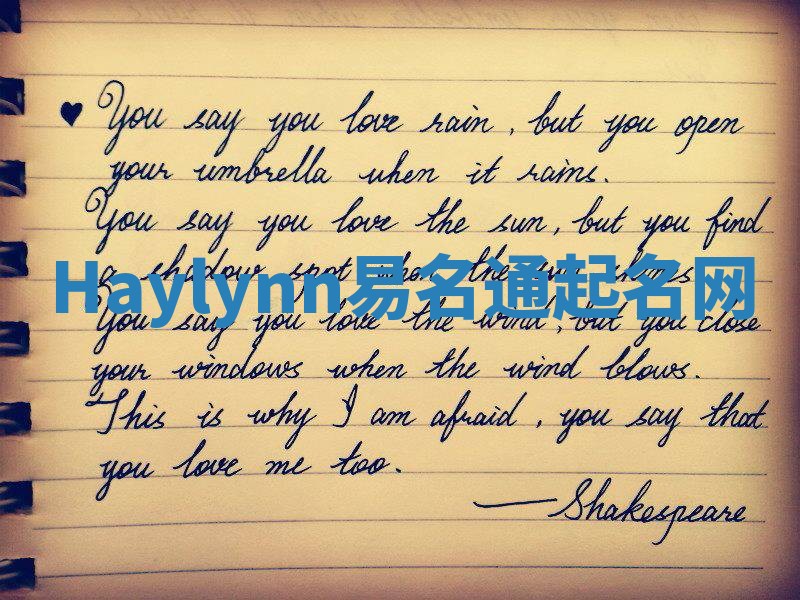 ♥ You say you love rain, but you open
your umbrella when it rains.
You say you love the sun, but you find
a shadow spot when the sun shines
Haylynn易名通起名网
You say you love the wind, but you close
your windows when the wind blows.
This is why I am afraid, you say that
you love me too.
—Shakespeare